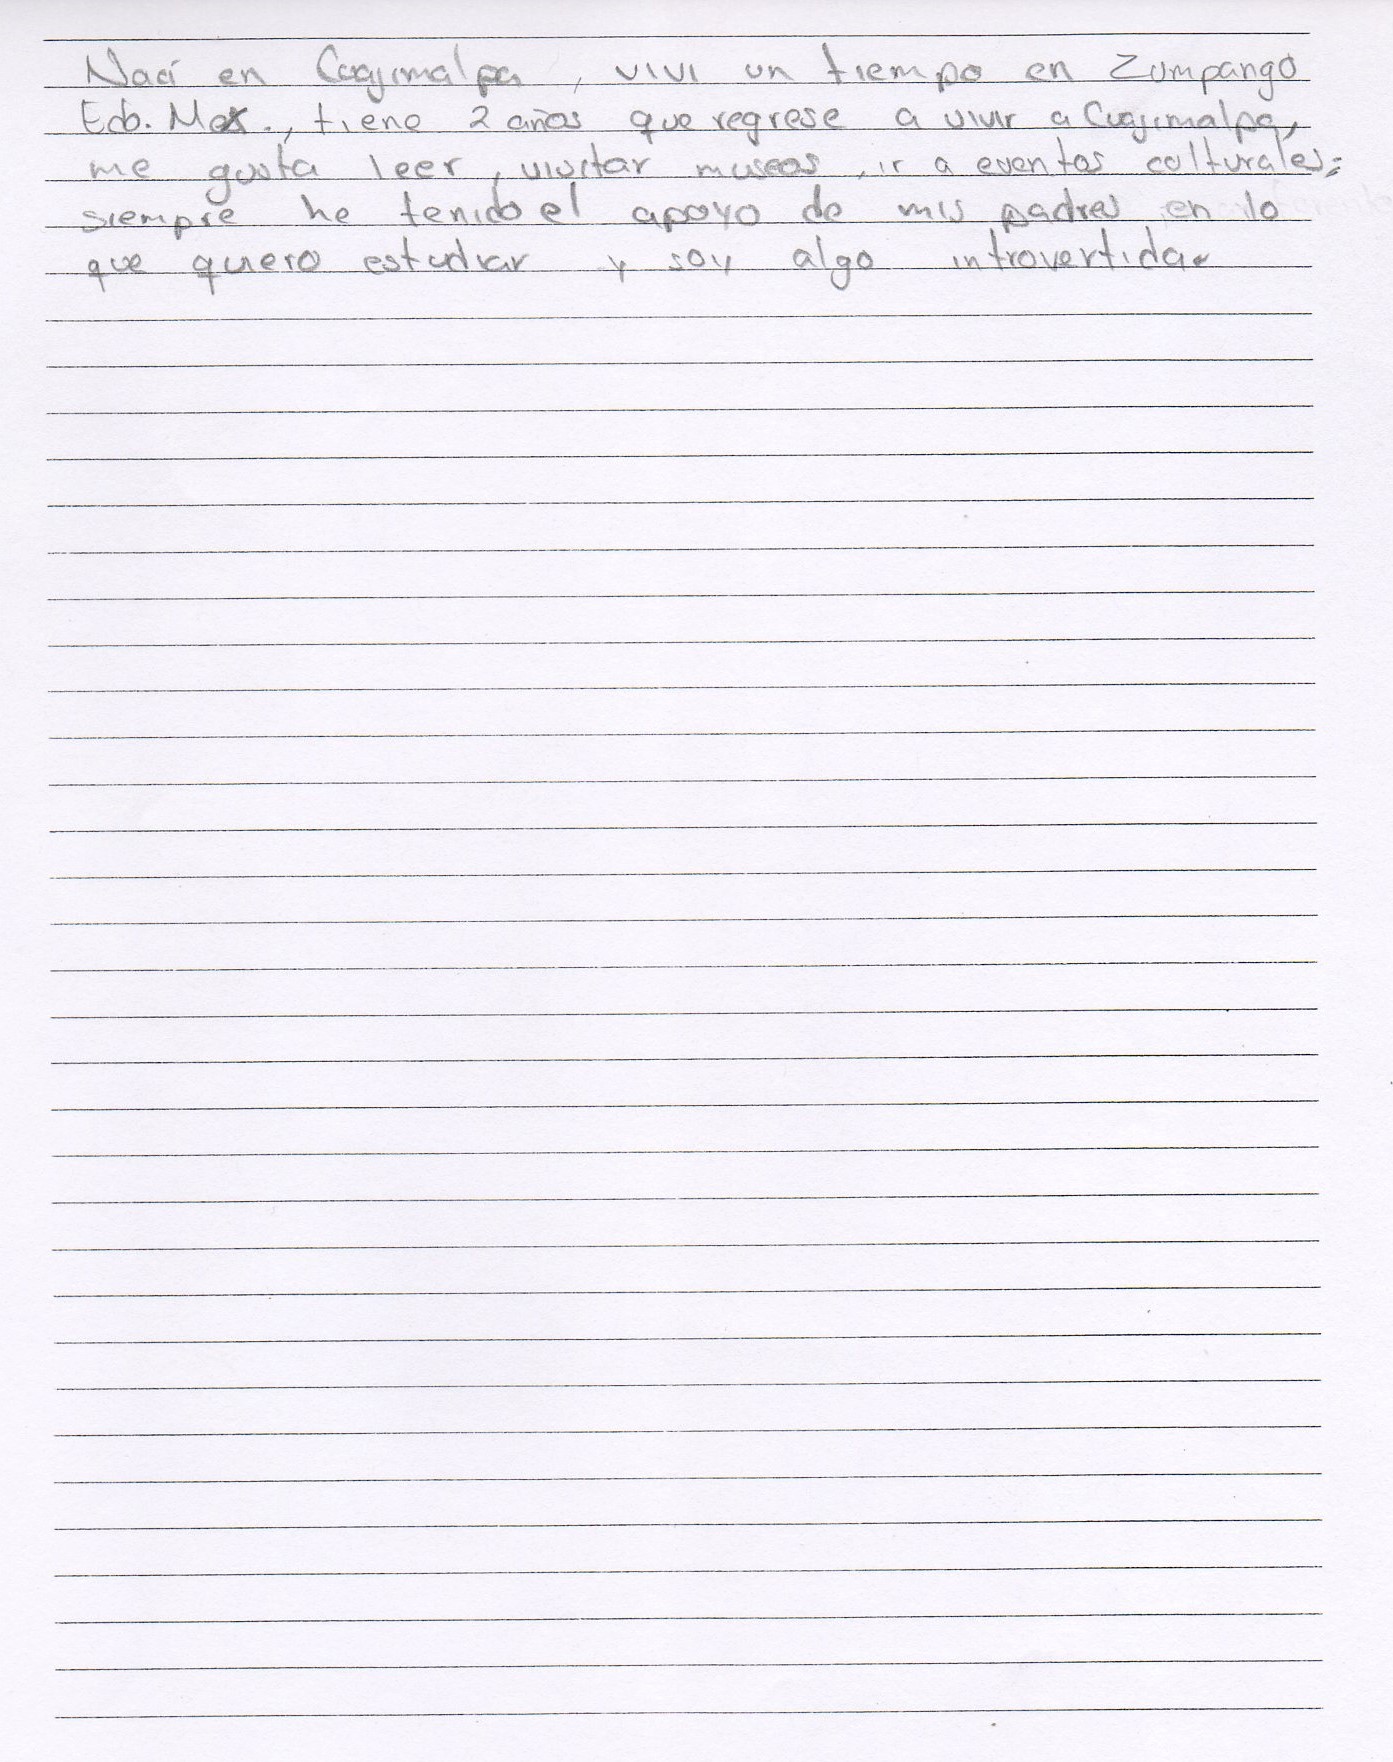 Nací en Cuajimalpa, vivi un tiempo en Zumpango
Edo. Mex., tiene 2 años que regrese a vivir a Cuajimalpa,
me gusta leer, visitar museos, ir a eventos culturales,
siempre he tenido el apoyo de mis padres en lo
que quiero estudiar y soy algo introvertida.